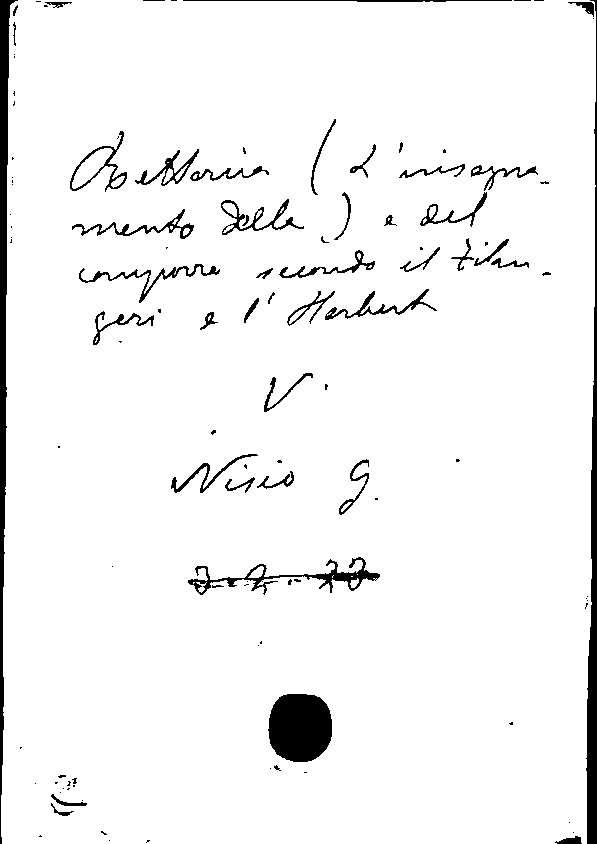 Rettorica (L'insegna-
mento della) e del
comporre secondo il Filan-
geri e l'Herbart
V.
Nisio G.
3.2.33